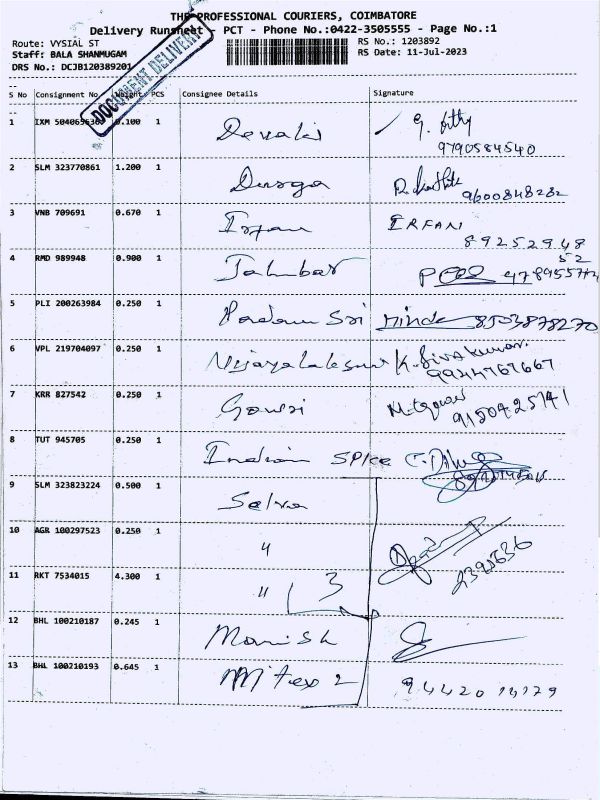 THE PROFESSIONAL COURIERS, COIMBATORE
Delivery Runsheet - PCT - Phone No.:0422-3505555 - Page No.:1
Route: VYSIAL ST
RS No.: 1203892
Staff: BALA SHANMUGAM
RS Date: 11-Jul-2023
DRS No.: DCJB120389201
DOCUMENT DELIVERY
S No Consignment No. Weight PCS Consignee Details Signature
1 IXM 1 Devaki
9790584540
2 SLM 323770861 1.200 1 Durga 9600848282
3 VNB 709691 0.670 1 Irfan ERFAN
892529 48
52
4 RMD 989948 0.900 1
5 PLI 200263984 0.250 1 Sri 8503878270
6 VPL 219704097 0.250 1 K. Siva kumar.
9944767667
7 KRR 827542 0.250 1 Gowri
8 TUT 945705 0.250 1 Indian SPICE
9 SLM 323823224 0.500 1 Selva
10 AGR 100297523 0.250 1 "
11 RKT 7534015 4.300 1 " 3
12 BHL 100210187 0.245 1 Manish
13 BHL 100210193 0.645 1 2